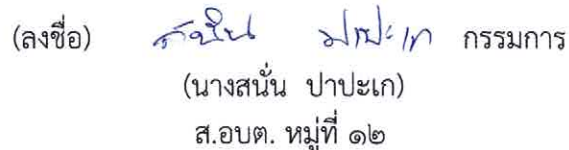 (ลงชื่อ) สนั่น ปาปะเก กรรมการ
(นางสนั่น ปาปะเก)
ส.อบต. หมู่ที่ ๑๒